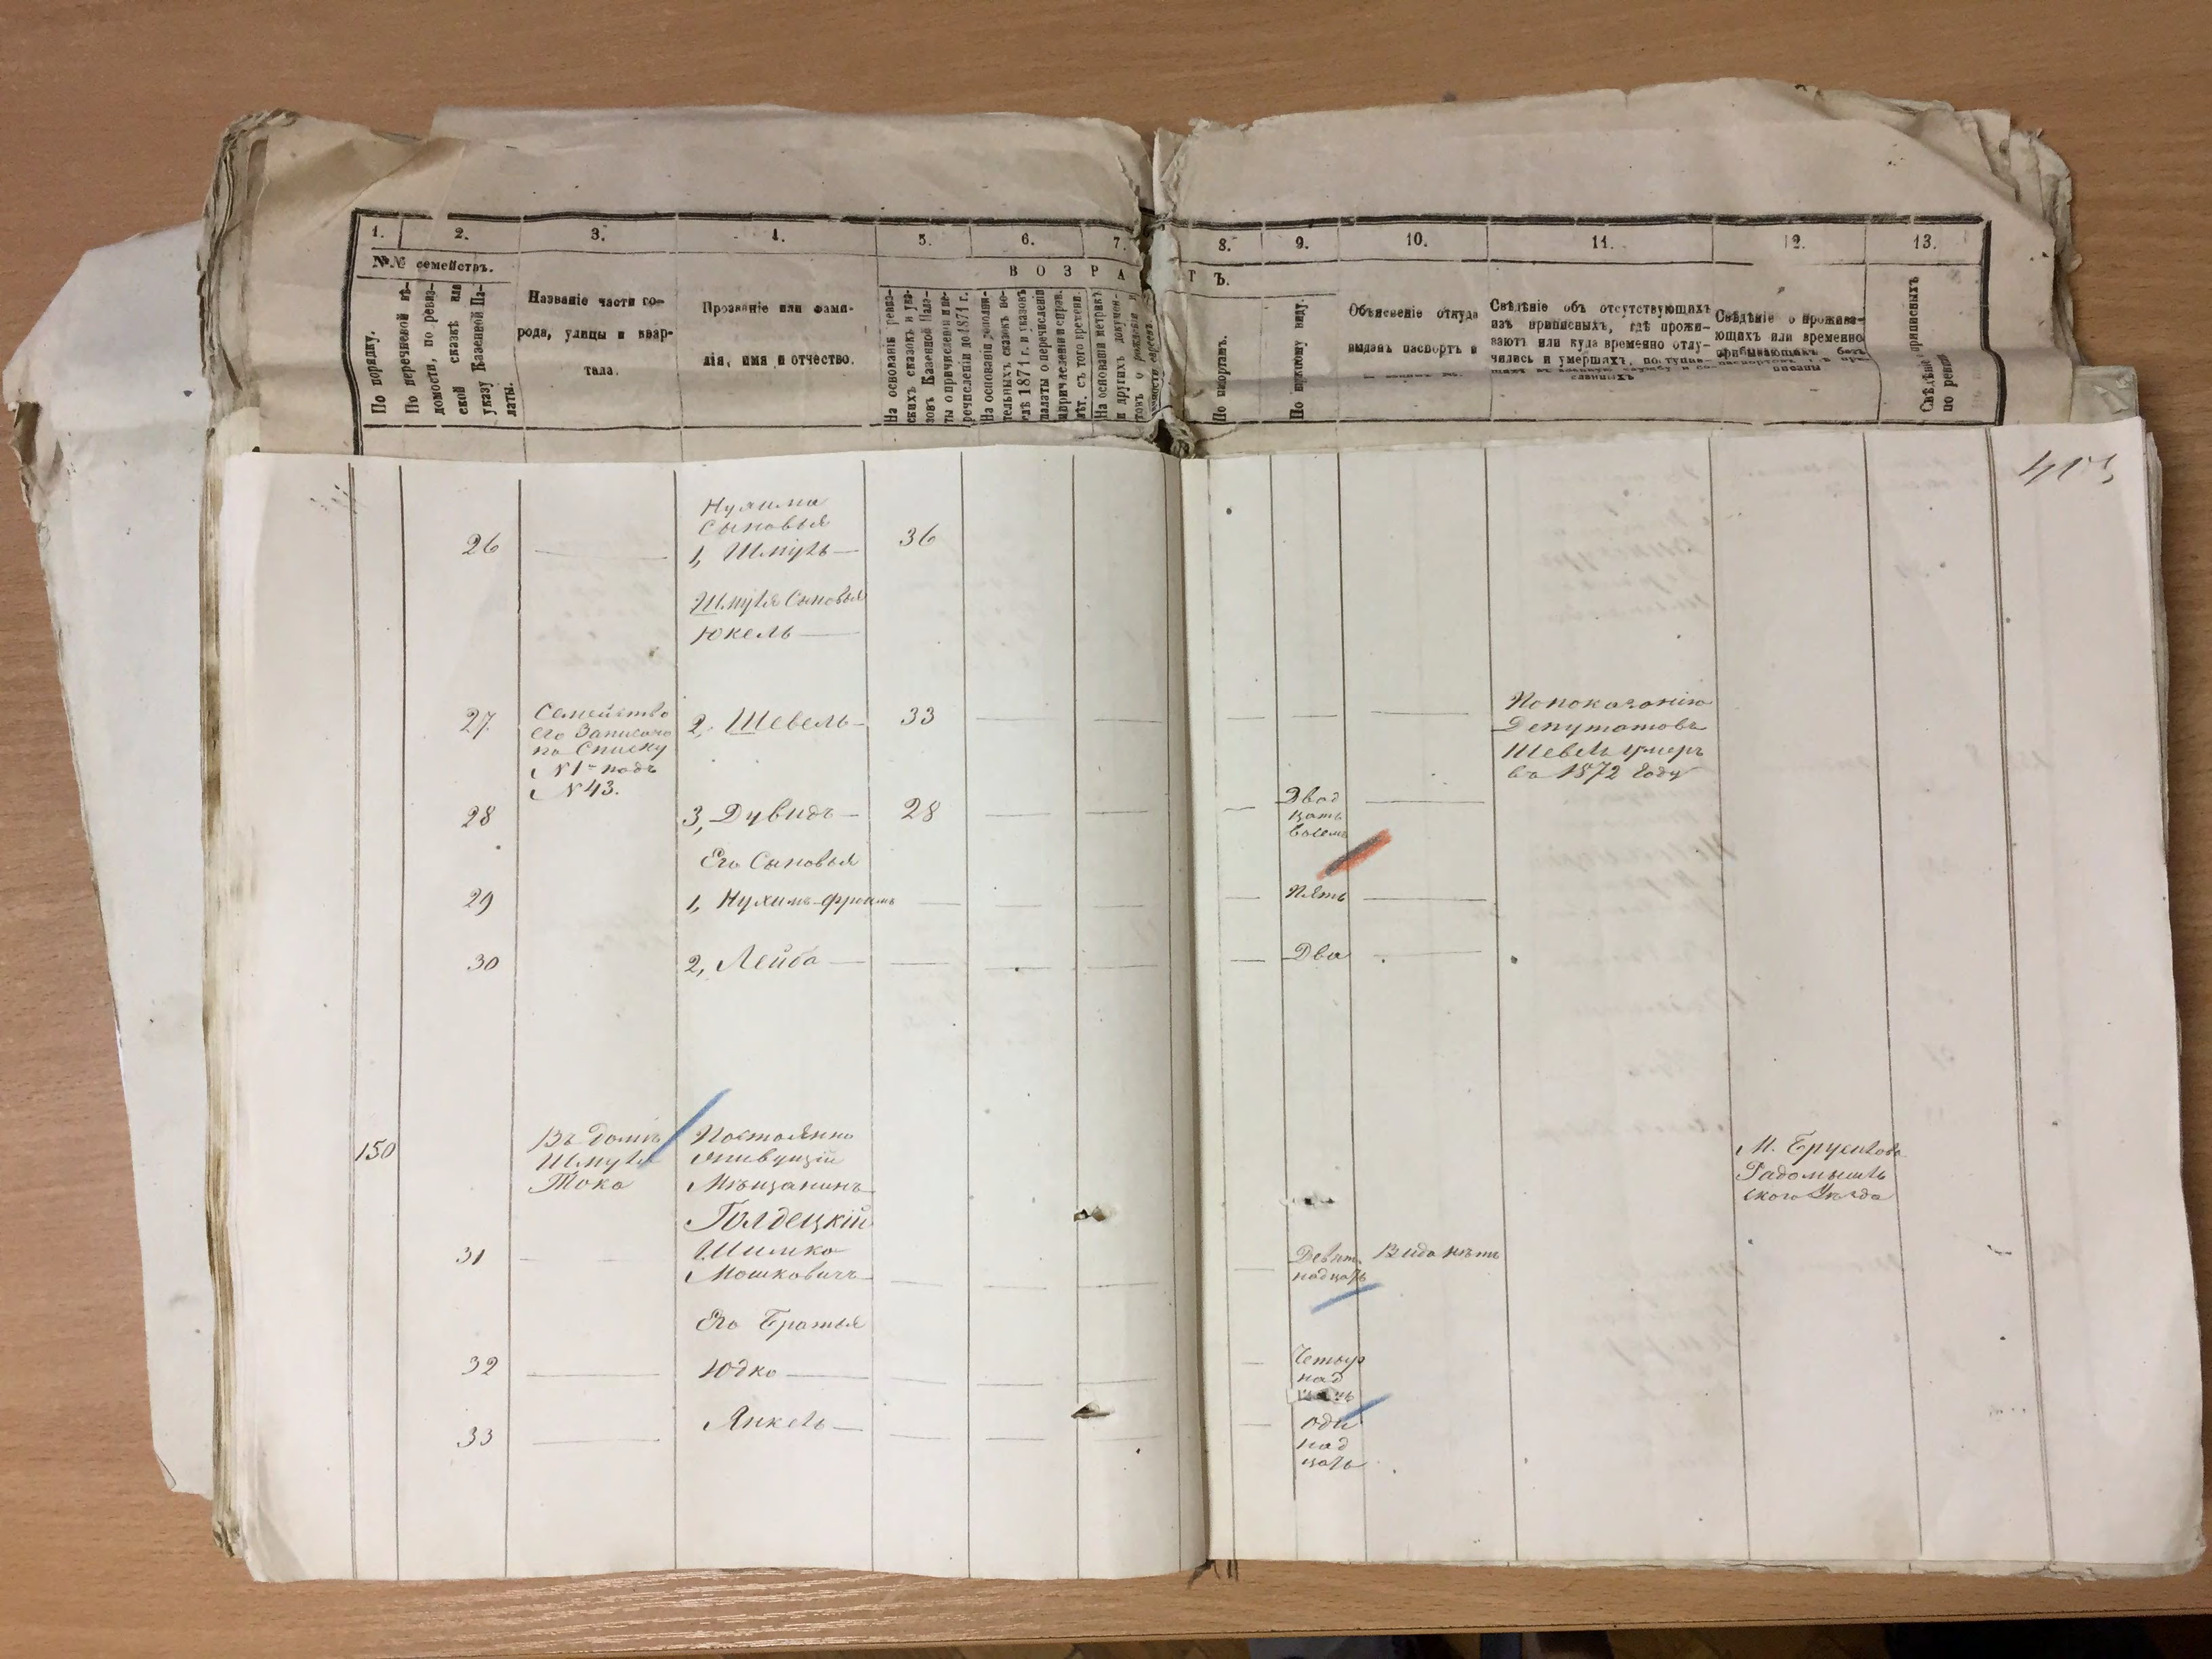 1.
2.
3.
4.
5.
6.
7.
8.
9.
10.
11.
12.
13.
№№ семействъ.
ВОЗРА
ТЪ.
По порядку.
По перечневой вѣ-
домости, по ревиз-
ской сказкѣ или
указу Казенной Па-
латы.
Названіе части го-
рода, улицы и квар-
тала.
Прозваніе или фами-
лія, имя и отчество.
На основаніи ревиз-
скихъ сказокъ и ука-
зовъ Казенной Пала-
ты о причисленіи и пе-
речисленіи до 1871 г.
На основаніи дополни-
тельныхъ сказокъ по-
слѣ 1871 г. и указовъ
палаты о перечисленіи
На основаніи метрикъ
и другихъ докумен-
товъ о рожденіи
По паспортамъ.
По наружному виду.
Объясненіе откуда
выданъ паспортъ и
Свѣдѣніе объ отсутствующихъ
изъ приписныхъ, гдѣ прожи-
ваютъ или куда временно отлу-
чились и умершихъ, поступив-
Свѣдѣніе о прожива-
ющихъ или временно
прибывающихъ безъ
приписныхъ
по реви
Нухима
Сыновья
26
1, Шмуль
36
Шмуля Сыновья
Юкель
27
Семейство
его Записано
по Списку
№ 1 подъ
№ 43.
2, Шевель
33
По показанію
Депутатовъ
Шевель умеръ
въ 1872 году
28
3, Дувидъ
28
Двад
цать
восемь
Его Сыновья
29
1, Нухимъ-Фроимъ
Пять
30
2, Лейба
Два
150
Въ Домѣ
Шмуля
Тока
Постоянно
живущій
Мѣщанинъ
Голдецкій
31
Шимко
Мошковичъ
Девят
надцать
Вида нѣтъ
М. Брусилова
Радомысль
скаго Уѣзда
Его Братья
32
Юдко
Четыр
над
33
Янкель
Оди
над
цать